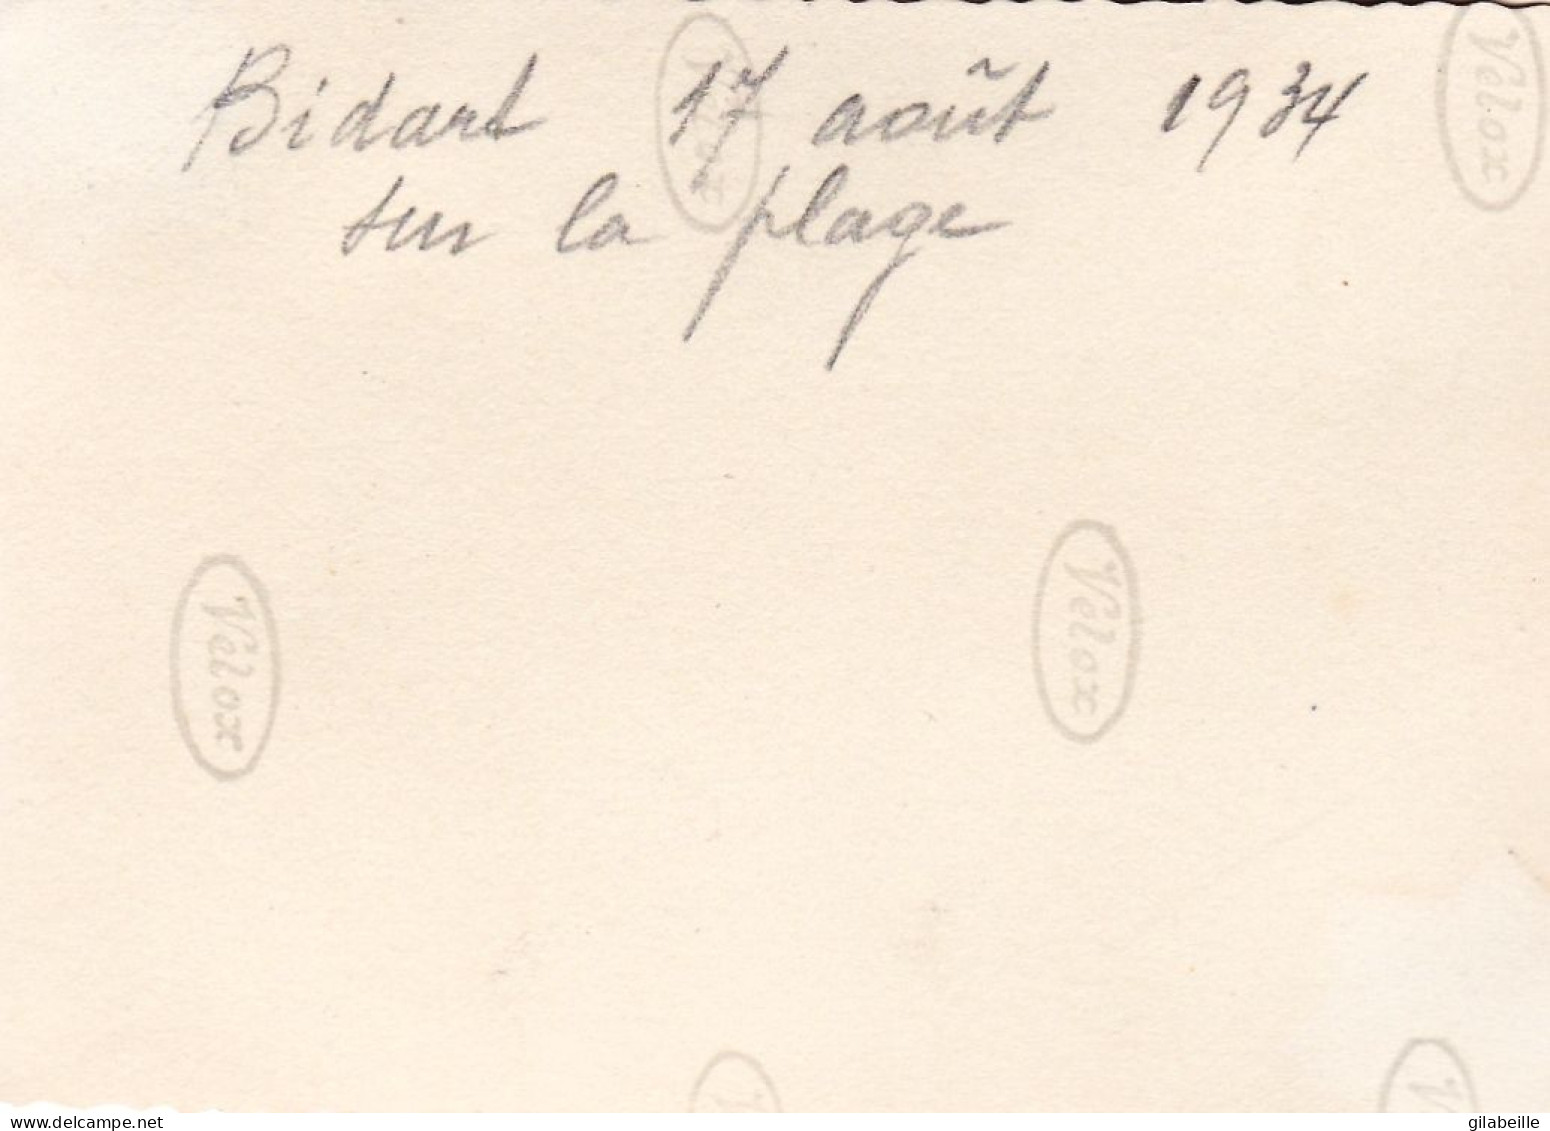 Bidart 17 août 1934
sur la plage
Velox
Velox
Velox
Velox
V
V
www.delcampe.net
gilabeille